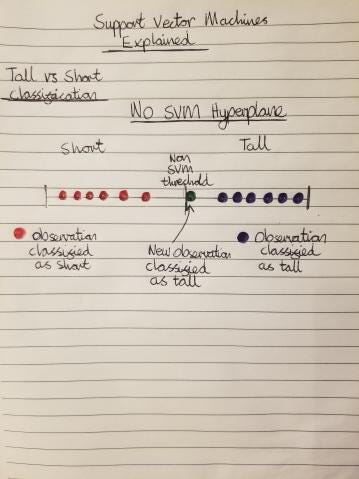 Support Vector Machines
Explained
Tall vs Short
classification
No SVM Hyperplane
Short
Non
SVM
threshold
Tall
observation
classified
as short
New observation
classified
as tall
Observation
classified
as tall